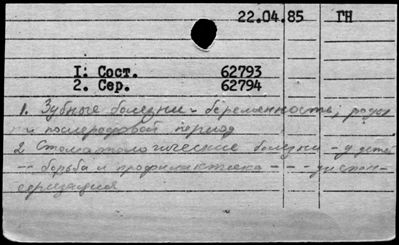 22.04.85 ГН
I. Сост. 62793
2. Сер. 62794
1. Зубные болезни - беременность, роды
и послеродовой период
2 Стоматологические болезни - у детей
-- борьба и профилактика - - - диспан-
серизация